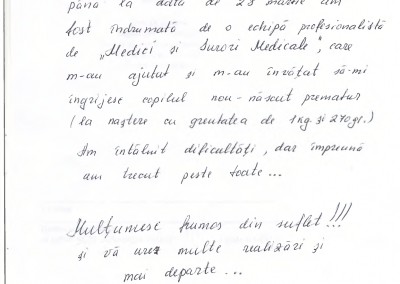 până la data de 23 martie am
fost îndrumată de o echipă profesionalistă
de „Medici și Surori Medicale", care
m-au ajutat și m-au învățat să-mi
îngrijesc copilul nou-născut prematur
(la naștere cu greutatea de 1kg. și 270gr.)
Am întâlnit dificultăți, dar împreună
am trecut peste toate...
Mulțumesc frumos din suflet!!!
și vă urez multe realizări și
mai departe...